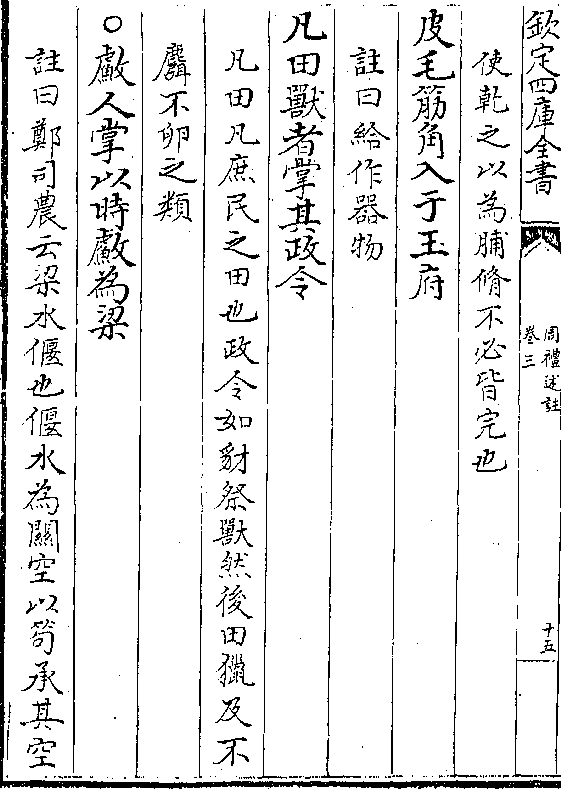 欽定四庫全書
周禮述註
卷三
十五
使乾之以為脯脩不必皆完也
皮毛筋角入于玉府
註曰給作器物
凡田獸者掌其政令
凡田凡庶民之田也政令如豺祭獸然後田獵及不
麛不卵之類
○䱷人掌以時䱷為梁
註曰鄭司農云梁水偃也偃水為關空以笱承其空